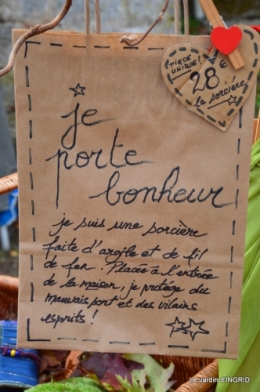 pièce
unique!
28 €
la sorcière
je
porte
bonheur
je suis une sorcière
faite d'argile et de fil
de fer. Placée à l'entrée
de la maison, je protège du
mauvais sort et des vilains
esprits!
Jardin d'INGRID